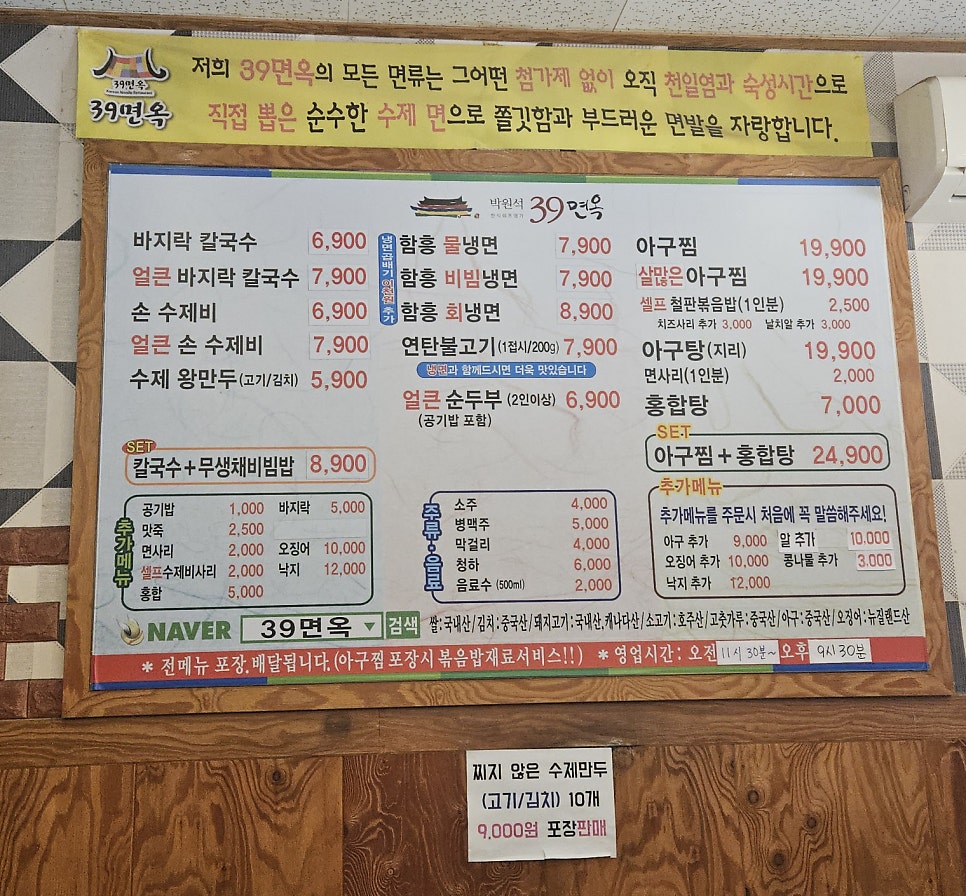 저희 39면옥의 모든 면류는 그어떤 첨가제 없이 오직 천일염과 숙성시간으로
직접 뽑은 순수한 수제 면으로 쫄깃함과 부드러운 면발을 자랑합니다.
39면옥
39면옥
박원석 39면옥
바지락 칼국수 6,900
얼큰 바지락 칼국수 7,900
손 수제비 6,900
얼큰 손 수제비 7,900
수제 왕만두(고기/김치) 5,900
SET
칼국수+무생채비빔밥 8,900
냉면곱배기 이천원 추가
함흥 물냉면 7,900
함흥 비빔냉면 7,900
함흥 회냉면 8,900
연탄불고기(1접시/200g) 7,900
냉면과 함께드시면 더욱 맛있습니다
얼큰 순두부 (2인이상) 6,900
(공기밥 포함)
아구찜 19,900
살많은아구찜 19,900
셀프 철판볶음밥(1인분) 2,500
치즈사리 추가 3,000 날치알 추가 3,000
아구탕(지리) 19,900
면사리(1인분) 2,000
홍합탕 7,000
SET
아구찜+홍합탕 24,900
추가메뉴
공기밥 1,000 바지락 5,000
맛죽 2,500
면사리 2,000 오징어 10,000
셀프수제비사리 2,000 낙지 12,000
홍합 5,000
주류·음료
소주 4,000
병맥주 5,000
막걸리 4,000
청하 6,000
음료수 (500ml) 2,000
추가메뉴
추가메뉴를 주문시 처음에 꼭 말씀해주세요!
아구 추가 9,000 알 추가 10.000
오징어 추가 10,000 콩나물 추가 3.000
낙지 추가 12,000
NAVER 39면옥 검색
쌀:국내산/김치:중국산/돼지고기:국내산,캐나다산/소고기:호주산/고춧가루:중국산/아구:중국산/오징어:뉴질랜드산
* 전메뉴 포장.배달됩니다.(아구찜 포장시 볶음밥재료서비스!!) *영업시간: 오전 11시 30분~ 오후 9시 30분
찌지 않은 수제만두
(고기/김치) 10개
9,000원 포장판매